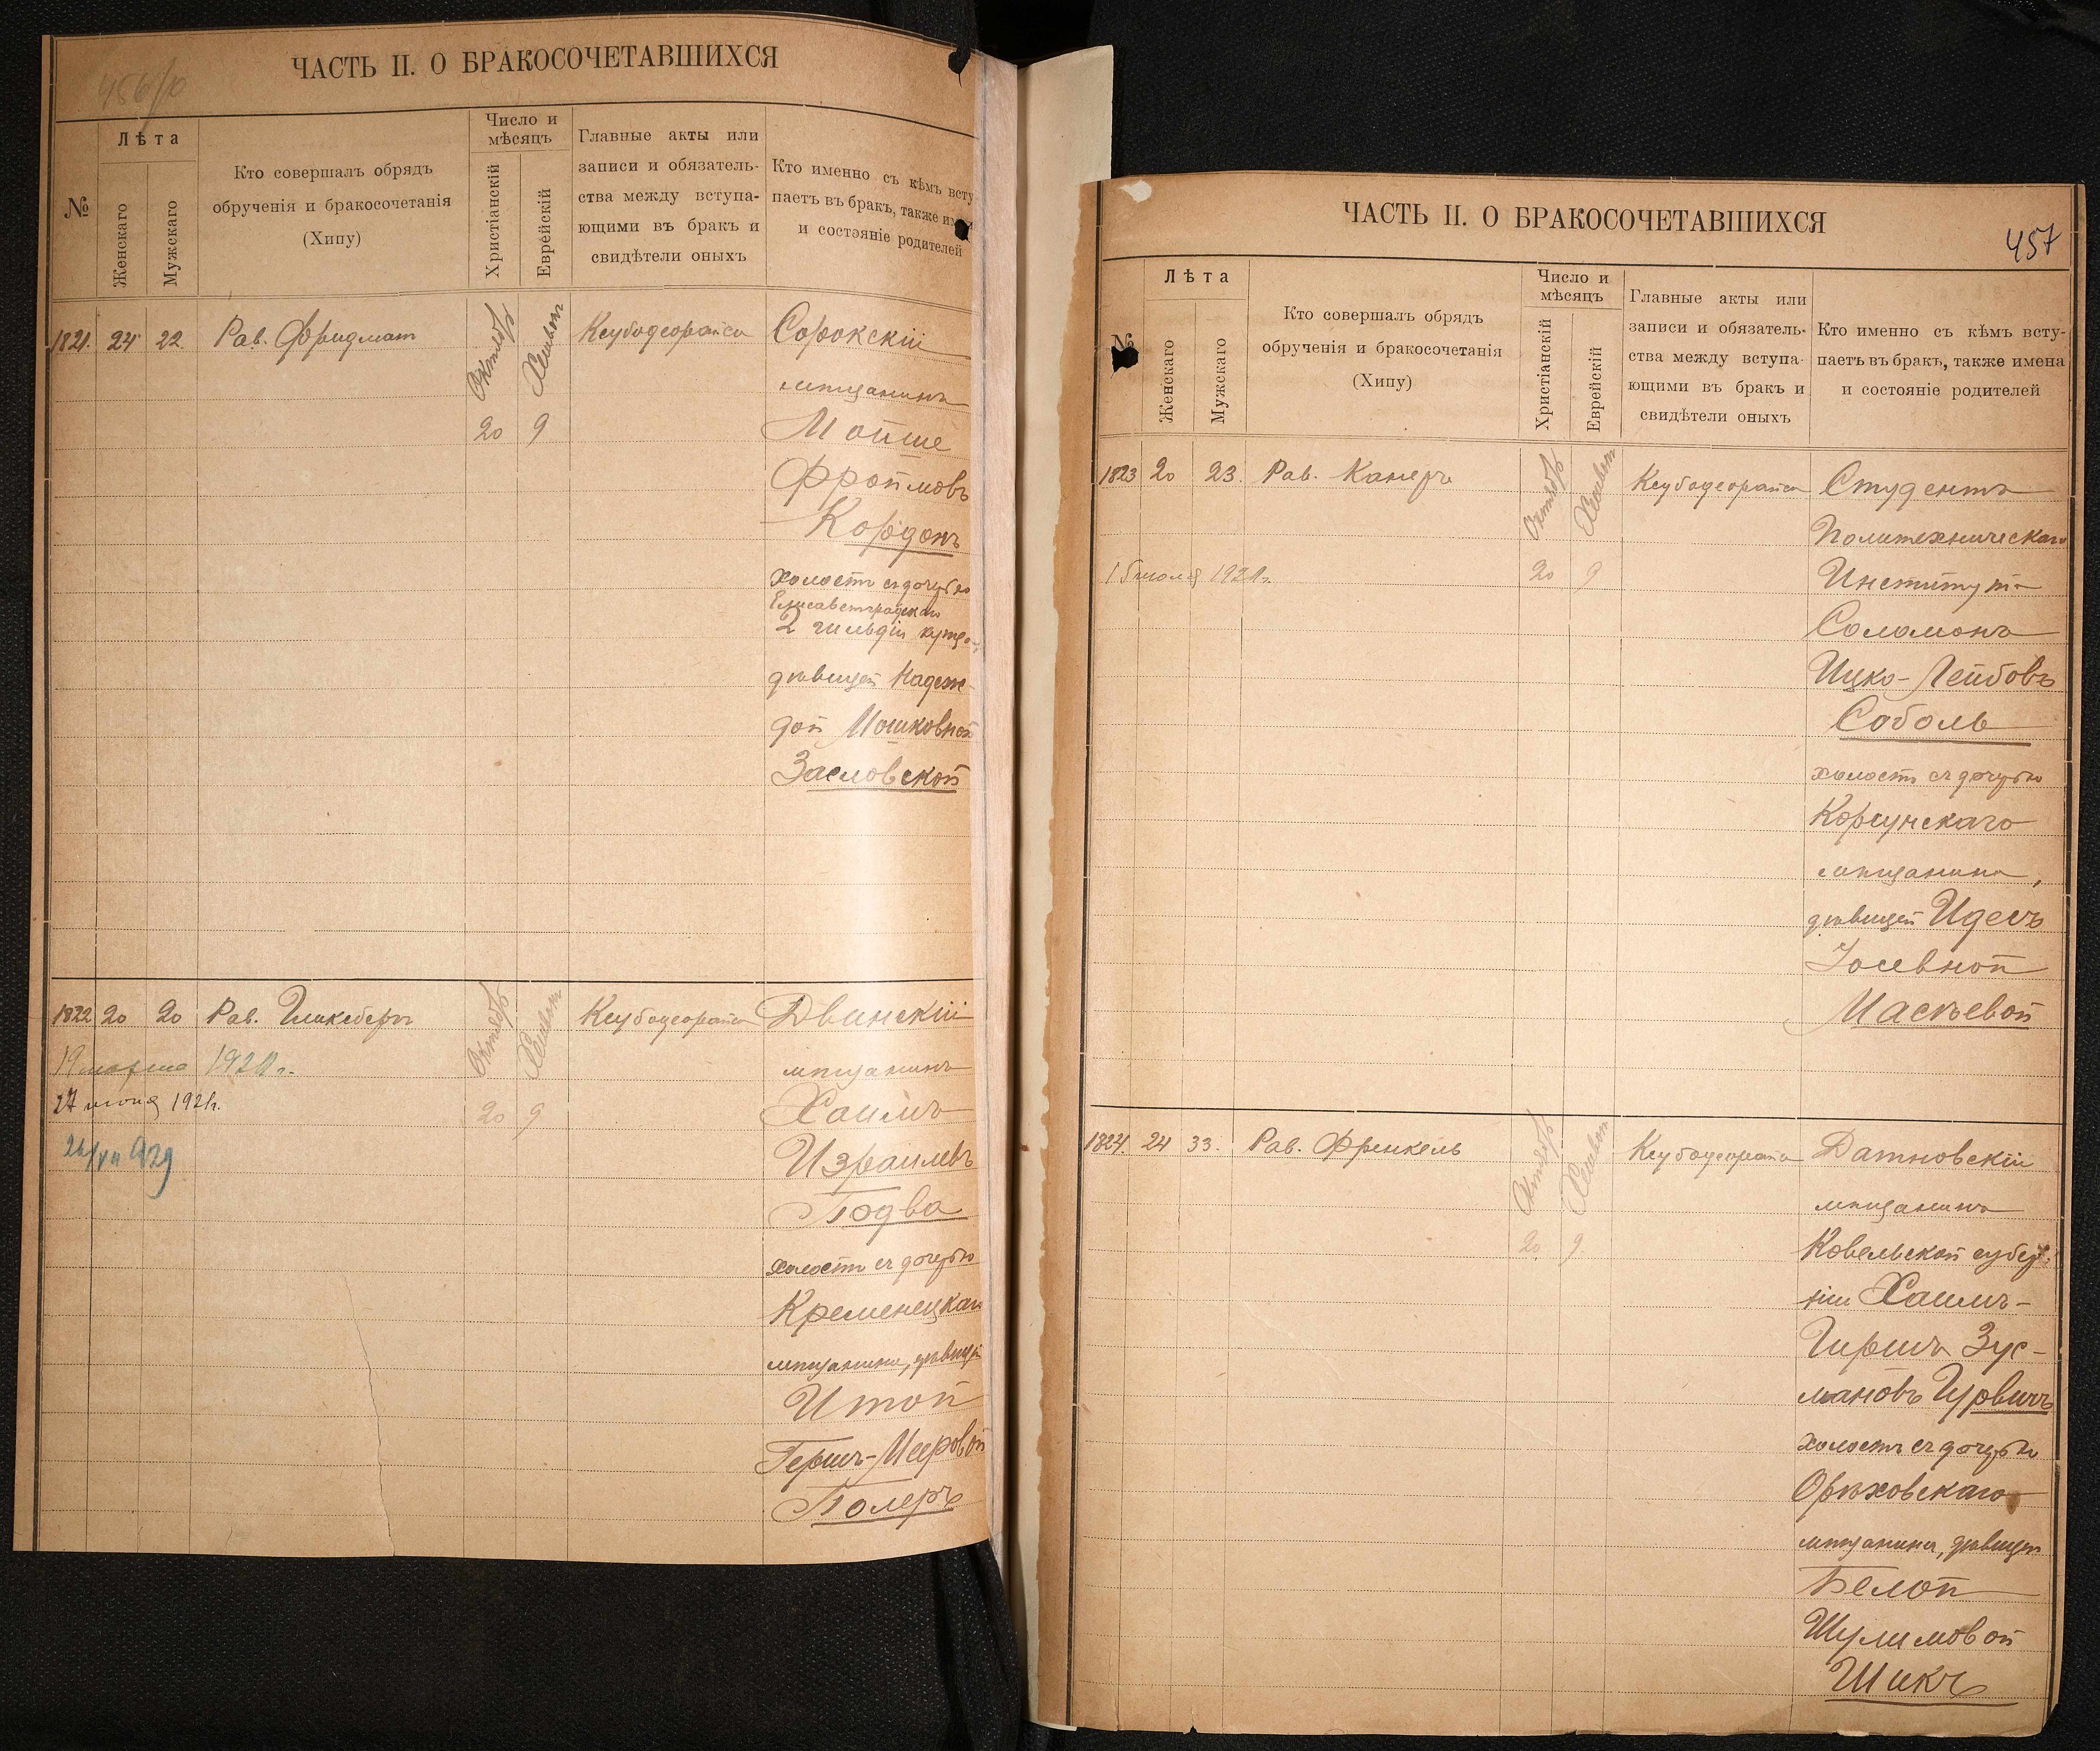 456/о
ЧАСТЬ II. О БРАКОСОЧЕТАВШИХСЯ
№
Лѣта
Женскаго
Мужскаго
Кто совершалъ обрядъ
обрученія и бракосочетанія
(Хипу)
Число и
мѣсяцъ
Христіанскій
Еврейскій
Главные акты или
записи и обязатель-
ства между вступа-
ющими въ бракъ и
свидѣтели оныхъ
Кто именно съ кѣмъ всту
паетъ въ бракъ, также им
и состояніе родителей
1821. 24 22. Рав. Фридман
Октябрь
Хешвон
20 9
Ксубадеорайса
Сорокскій
мѣщанинъ
Мойше
Фроймовъ
Кордонъ
холостъ съ дочерью
Елисаветградскаго
2 гильдіи купца
дѣвицей Надеж-
дой Мошковной
Засловской
1822 20 20 Рав.
Октябрь
Хешвон
20 9
Ксубадеорайса
19 марта 1921 г.
27 июня 1921г.
24/VII 929
Двинскій
мѣщанинъ
Хаимъ
Израилевъ
Подва
холостъ съ дочерью
Кременецкаго
мѣщанина, дѣвицей
Итой
Герш-Меировой
Полеръ
ЧАСТЬ II. О БРАКОСОЧЕТАВШИХСЯ
457
№
Лѣта
Женскаго
Мужскаго
Кто совершалъ обрядъ
обрученія и бракосочетанія
(Хипу)
Число и
мѣсяцъ
Христіанскій
Еврейскій
Главные акты или
записи и обязатель-
ства между вступа-
ющими въ бракъ и
свидѣтели оныхъ
Кто именно съ кѣмъ всту-
паетъ въ бракъ, также имена
и состояніе родителей
1823 20 23. Рав. Канеръ
Октябрь
Хешвон
20 9
Ксубадеорайса
июля 1921г.
Студентъ
Политехническаго
Института
Соломонъ
Ицко-Лейбовъ
Соболь
холостъ съ дочерью
Корсунскаго
мѣщанина,
дѣвицей Идесъ
Іосевной
Масѣевой
1824. 24 33. Рав. Френкель
Октябрь
Хешвон
20 9
Ксубадеорайса
Датновскій
мѣщанинъ
Ковельской губер-
ніи Хаимъ-
Гиршъ Зус-
мановъ Гурвичъ
холостъ съ дочерью
Орѣховскаго
мѣщанина, дѣвицей
Белой
Шулимовой
Шикъ